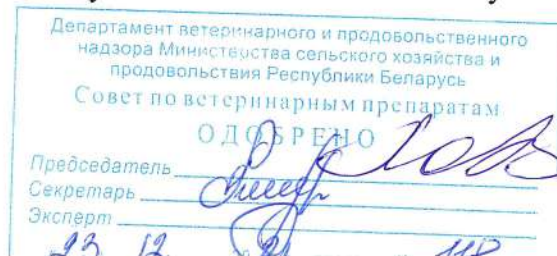 Департамент ветеринарного и продовольственного
надзора Министерства сельского хозяйства и
продовольствия Республики Беларусь
Совет по ветеринарным препаратам
ОДОБРЕНО
Председатель
Секретарь
Эксперт
23 12 118